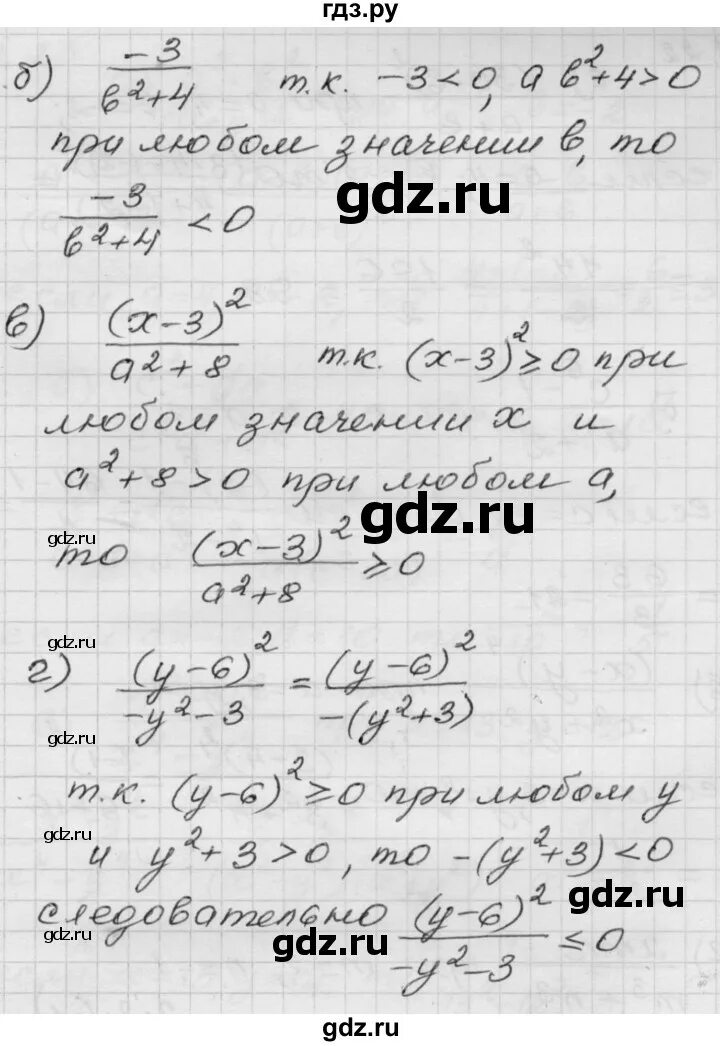 гдз.ру
б) -3/(b²+4) т.к. -3<0, а b²+4>0
при любом значении b, то
-3/(b²+4) < 0
gdz.ru
в) (x-3)²/(a²+8) т.к. (x-3)²≥0 при
любом значении x и
a²+8>0 при любом a,
gdz.ru
gdz.ru
то (x-3)²/(a²+8) ≥0
gdz.ru
г) (y-6)²/(-y²-3) = (y-6)²/(-(y²+3))
gdz.ru
т.к. (y-6)²≥0 при любом y
gdz.ru
и y²+3>0, то -(y²+3)<0
gdz.ru
следовательно (y-6)²/(-y²-3) ≤0
gdz.ru
gdz.ru